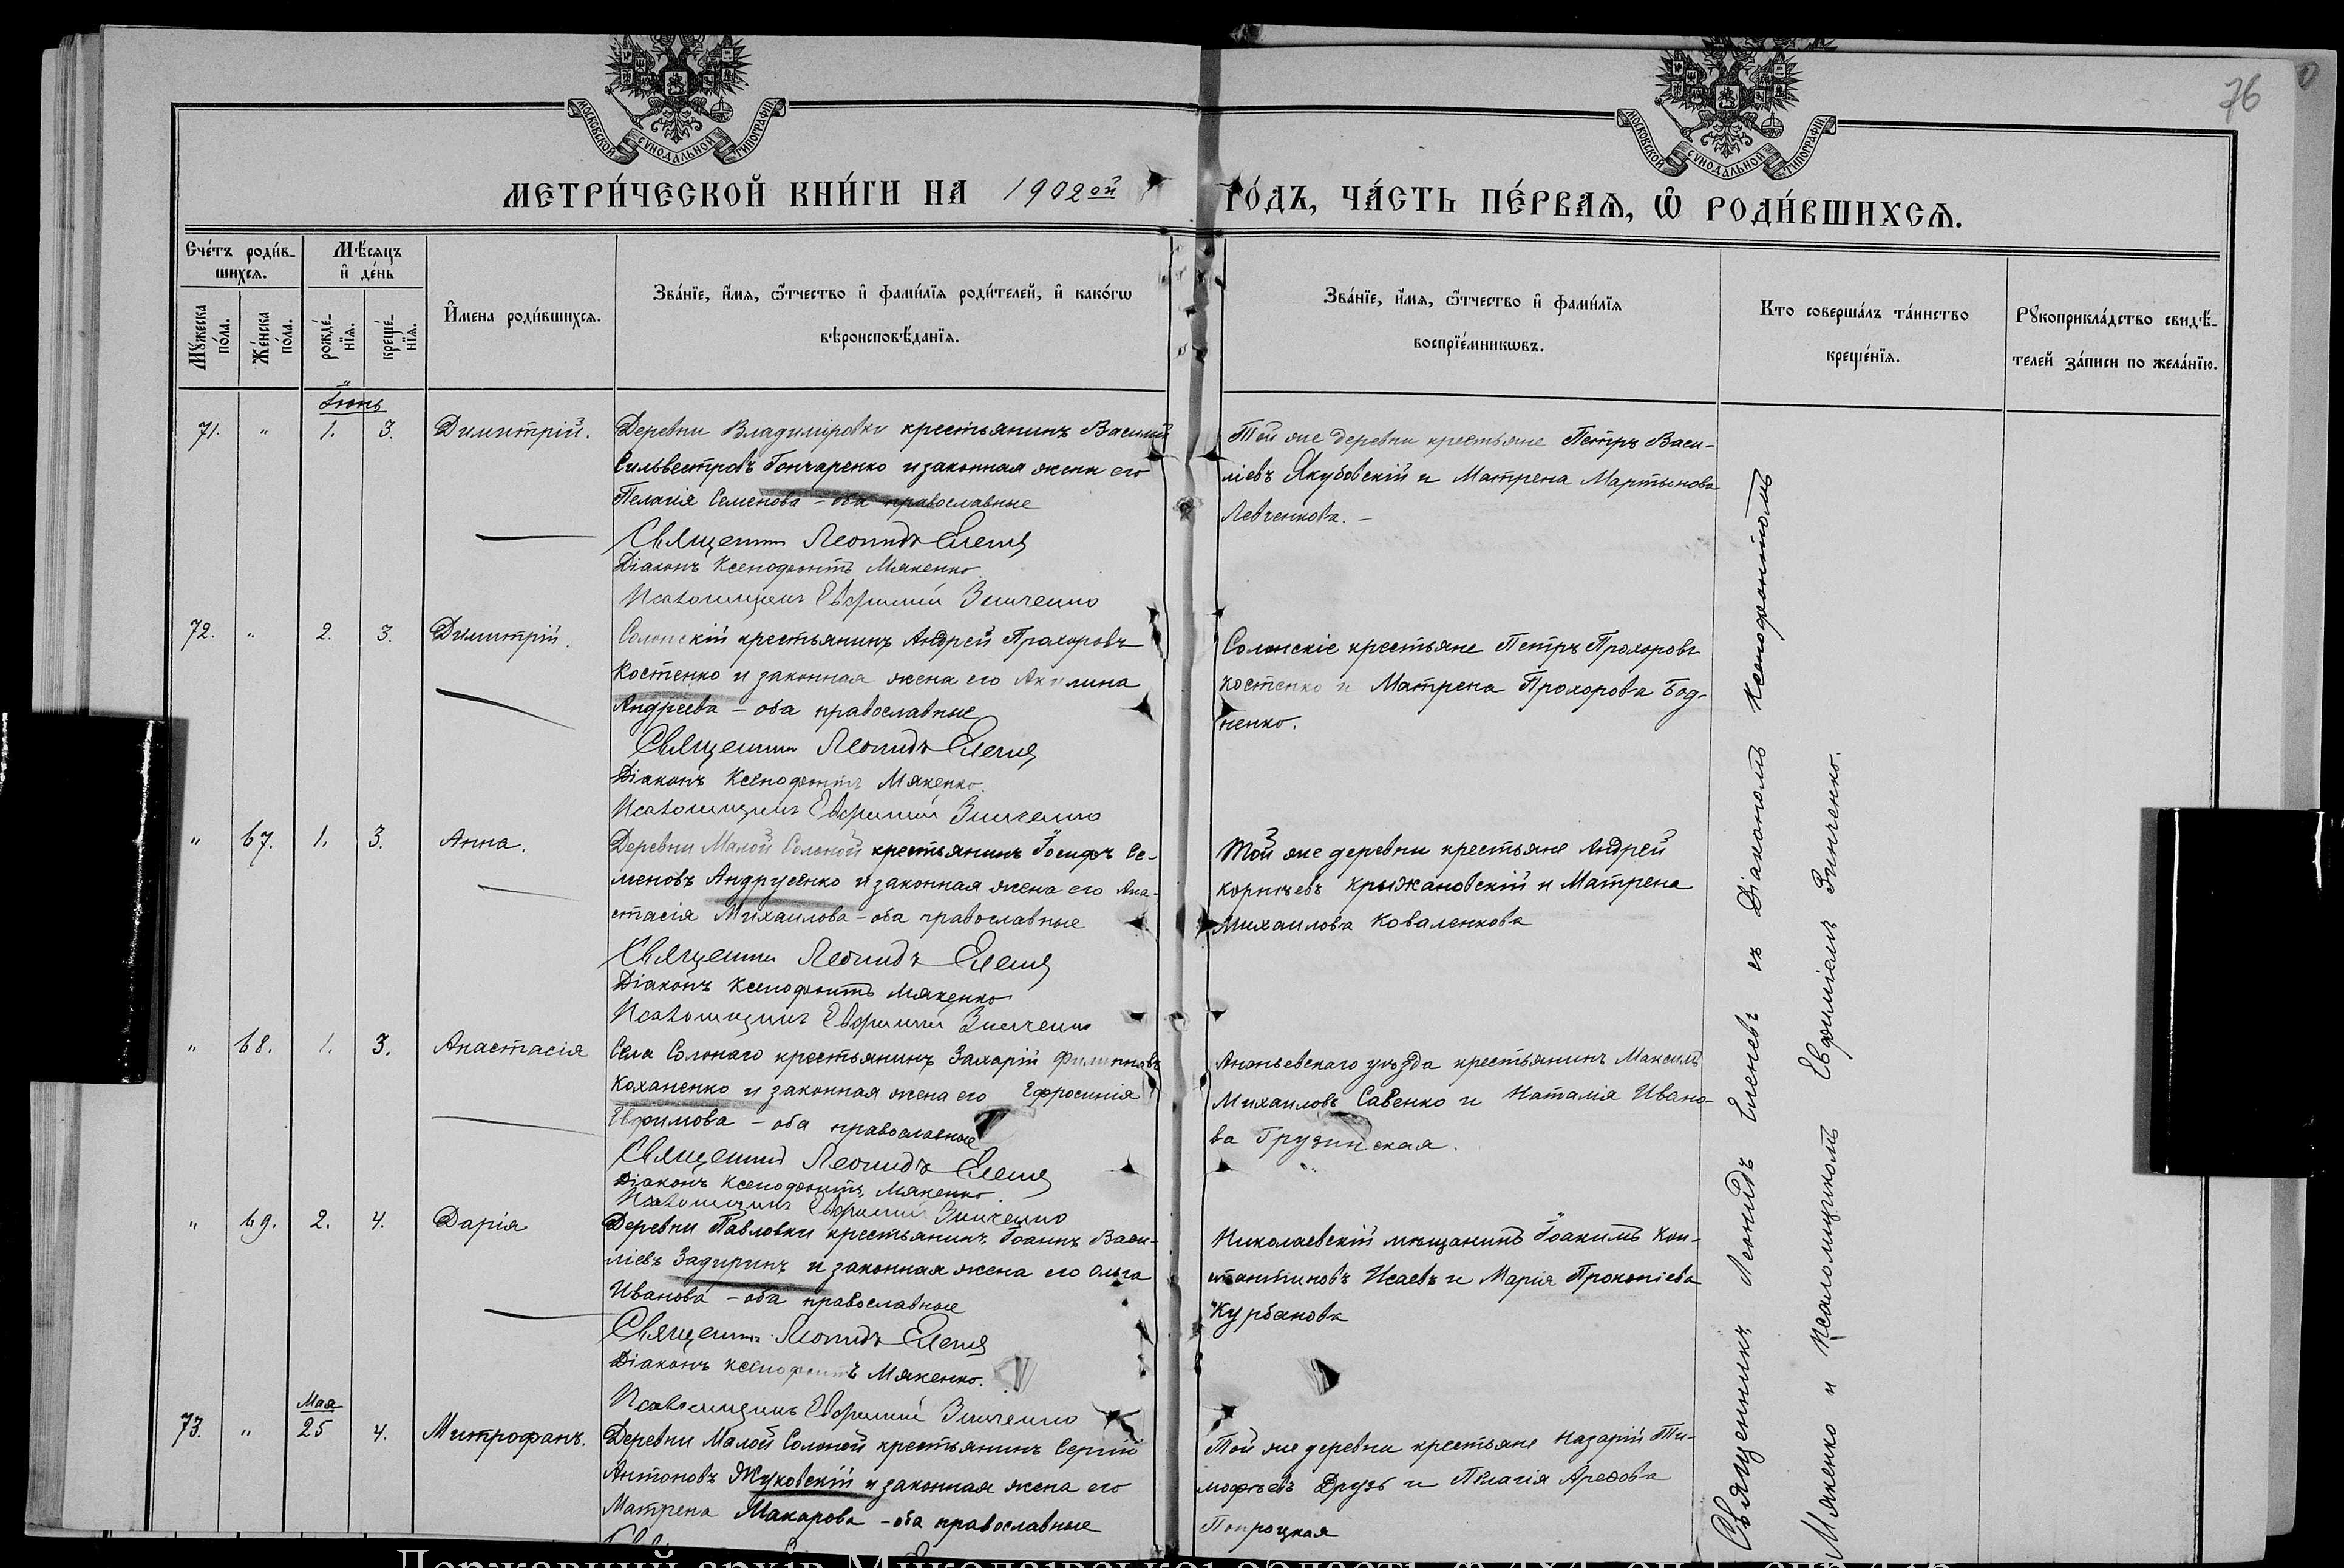 76
МОСКОВСКОЙ СѴНОДАЛЬНОЙ ТИПОГРАФІИ
МОСКОВСКОЙ СѴНОДАЛЬНОЙ ТИПОГРАФІИ
МЕТРИ́ЧЕСКОЙ КНИ́ГИ НА 1902ой ГО́ДЪ, ЧА́СТЬ ПЕ́РВАѦ, Ѡ РОДИ́ВШИХСѦ.
Сче́тъ роди́в-
шихсѧ.
Мѣ́сяцъ
и҆ де́нь
Мꙋ́жеска по́ла.
Же́нска по́ла.
рожде́-нїѧ.
креще́-нїѧ.
И҆́мена роди́вшихсѧ.
Зва́нїе, и҆́мѧ, ѻ҆́тчество и҆ фами́лїѧ роди́телей, и҆ како́гѡ
вѣроисповѣ́данїѧ.
Зва́нїе, и҆́мѧ, ѻ҆́тчество и҆ фами́лїѧ
воспрїе́мникѡвъ.
Кто соверша́лъ та́инство
креще́нїѧ.
Рꙋкоприкла́дство свидѣ́-
телей за́писи по жела́нїю.
Іюнь
71. " 1. 3. Димитрій.
Деревни Владиміровки крестьянинъ Василій
Сильвестровъ Гончаренко и законная жена его
Пелагія Семенова – оба православные
Священникъ Леонидъ Еленевъ
Діаконъ Ксенофонтъ Мякенко
Псаломщикъ Евфимій Зинченко
Той же деревни крестьяне Петръ Васи-
ліевъ Якубовскій и Матрена Мартынова
Левченкова. –
72. " 2. 3. Димитрій.
Солонскій крестьянинъ Андрей Прохоровъ
Костенко и законная жена его Акилина
Андреева – оба православные
Священникъ Леонидъ Еленевъ
Діаконъ Ксенофонтъ Мякенко.
Псаломщикъ Евфимій Зинченко
Солонскіе крестьяне Петръ Прохоровъ
Костенко и Матрена Прохорова Бод-
ненко.
" 67. 1. 3. Анна.
Деревни Малой Солоной крестьянинъ Іосифъ Се-
меновъ Андрусенко и законная жена его Ана-
стасія Михаилова – оба православные
Священникъ Леонидъ Еленевъ
Діаконъ Ксенофонтъ Мякенко
Псаломщикъ Евфимій Зинченко
Той же деревни крестьяне Андрей
Корніевъ Крыжановскій и Матрена
Михаилова Коваленкова
" 68. 1. 3. Анастасія
Села Солонаго крестьянинъ Захарій Филипповъ
Коханенко и законная жена его Ефросинія
Евфимова – оба православные
Священникъ Леонидъ Еленевъ
Діаконъ Ксенофонтъ Мякенко.
Псаломщикъ Евфимій Зинченко
Ананьевскаго уѣзда крестьянинъ Максимъ
Михаиловъ Савенко и Наталія Ивано-
ва Грузинская.
" 69. 2. 4. Дарія
Деревни Павловки крестьянинъ Іоаннъ Васи-
ліевъ Задиринъ и законная жена его Ольга
Иванова – оба православные
Священникъ Леонидъ Еленевъ
Діаконъ Ксенофонтъ Мякенко.
Псаломщикъ Евфимій Зинченко
Николаевскій мѣщанинъ Іоакимъ Кон-
стантиновъ Исаевъ и Марія Прокопіева
Курбанова
Мая
73. " 25 4. Митрофанъ.
Деревни Малой Солоной крестьянинъ Сергій
Антоновъ Жуковскій и законная жена его
Матрена Макарова – оба православные
Той же деревни крестьяне Назарій Ти-
мофѣевъ Друзь и Пелагія Арефова
Попроцкая
Священникъ Леонидъ Еленевъ съ Діакономъ Ксенофонтомъ
Мякенко и псаломщикомъ Евфиміемъ Зинченко.
Державний архів Миколаївської області